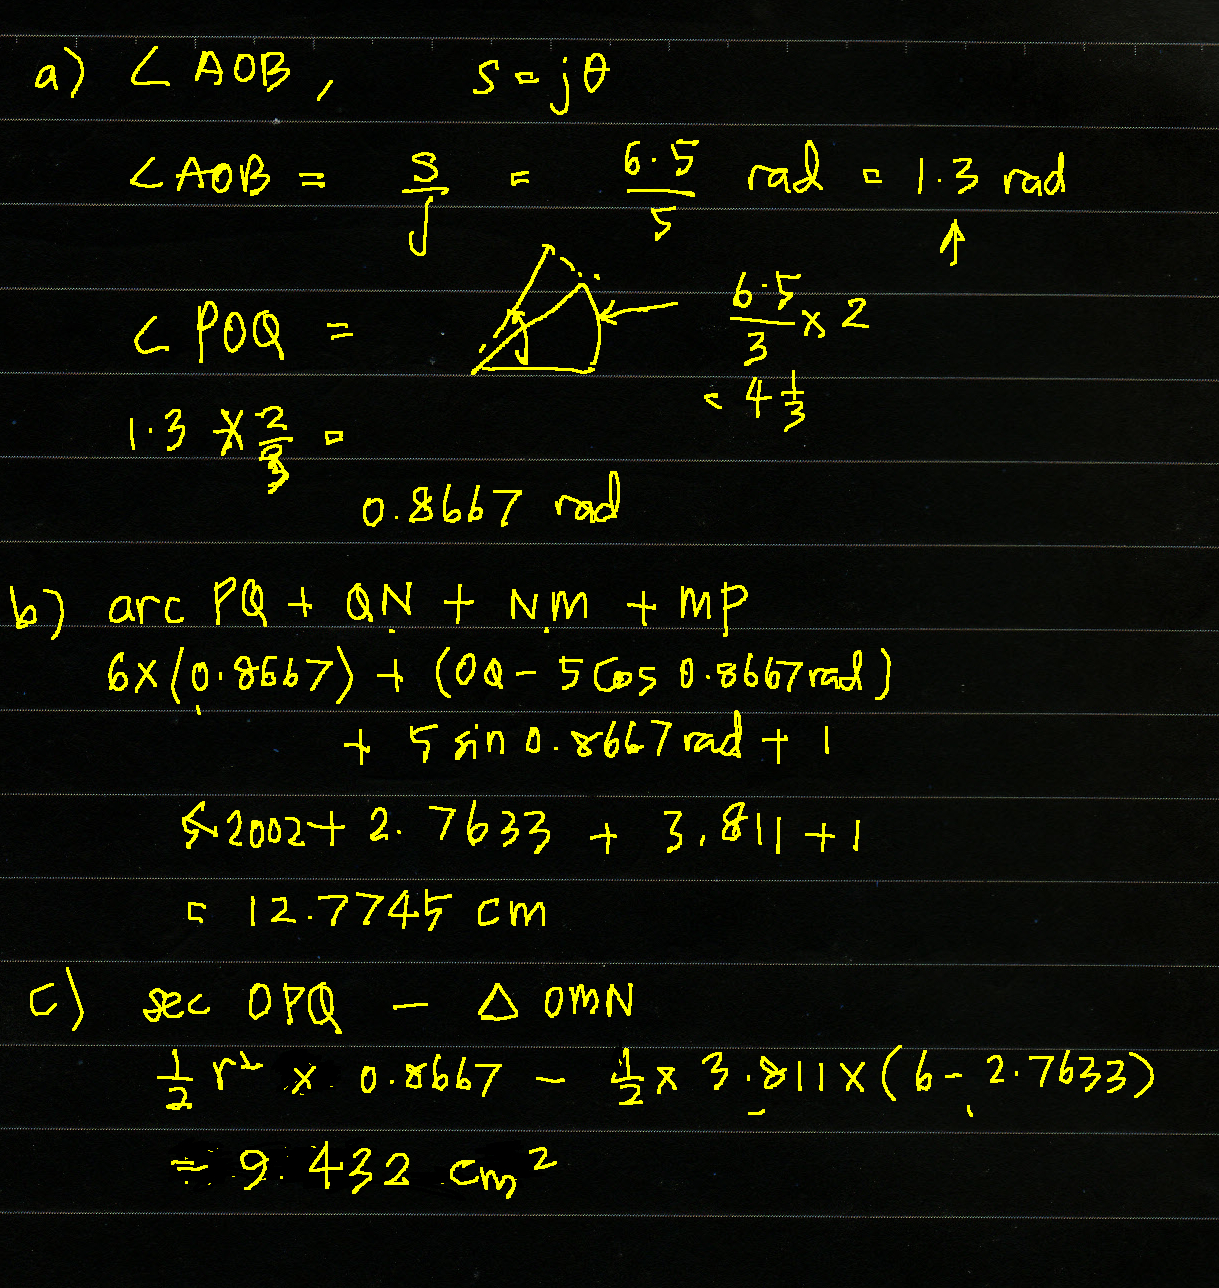 a) ∠ AOB, s = jθ
∠AOB = s/j = 6.5/5 rad = 1.3 rad
∠ POQ = 6.5/3 × 2
= 4 1/3
1.3 × 2/3 =
0.8667 rad
b) arc PQ + QN + NM + MP
6×(0.8667) + (OQ - 5 Cos 0.8667 rad)
+ 5 sin 0.8667 rad + 1
5.2002 + 2.7633 + 3.811 + 1
= 12.7745 cm
c) sec OPQ - △ OMN
1/2 r² × 0.8667 - 1/2 × 3.811 × (6 - 2.7633)
= 9.432 cm²